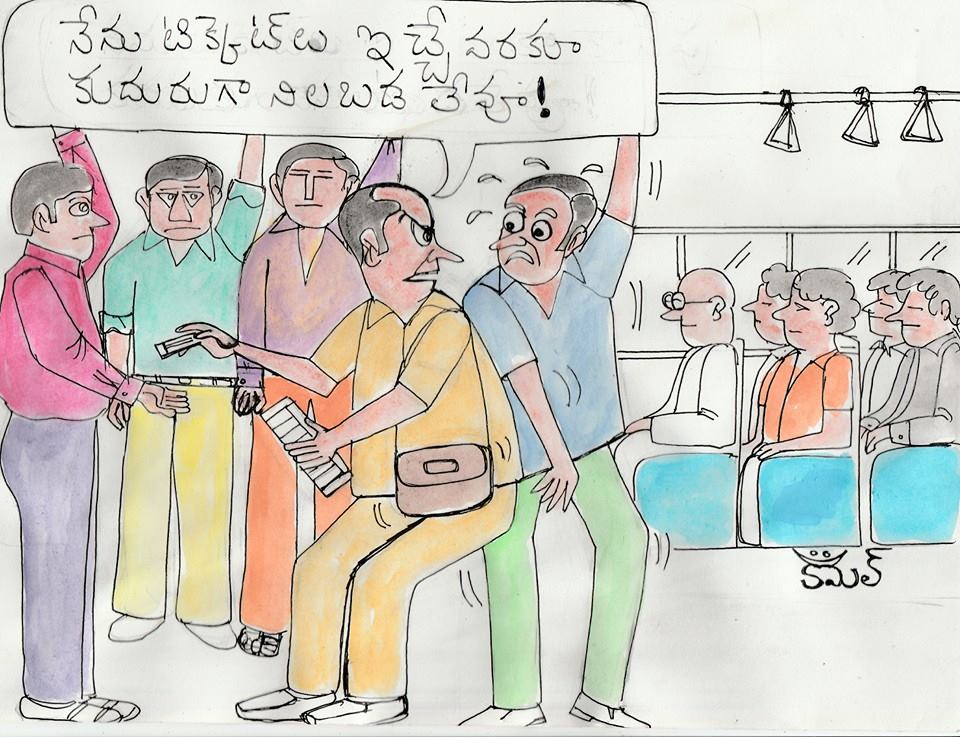 నేను టిక్కెట్‌లు ఇచ్చే వరకూ
కుదురుగా నిలబడ లేవూ!
కమల్